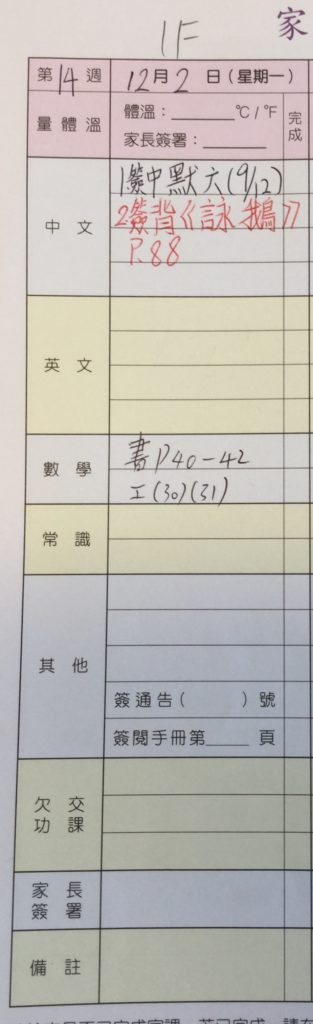 1F
家
第14週 12月2日(星期一)
量體溫
體溫：______℃/℉
家長簽署：______
完成
中文
1簽中默六(9/12)
2簽背《詠鵝》
P.88
英文
數學
書P40-42
工(30)(31)
常識
其他
簽通告( )號
簽閱手冊第____頁
欠交功課
家長簽署
備註